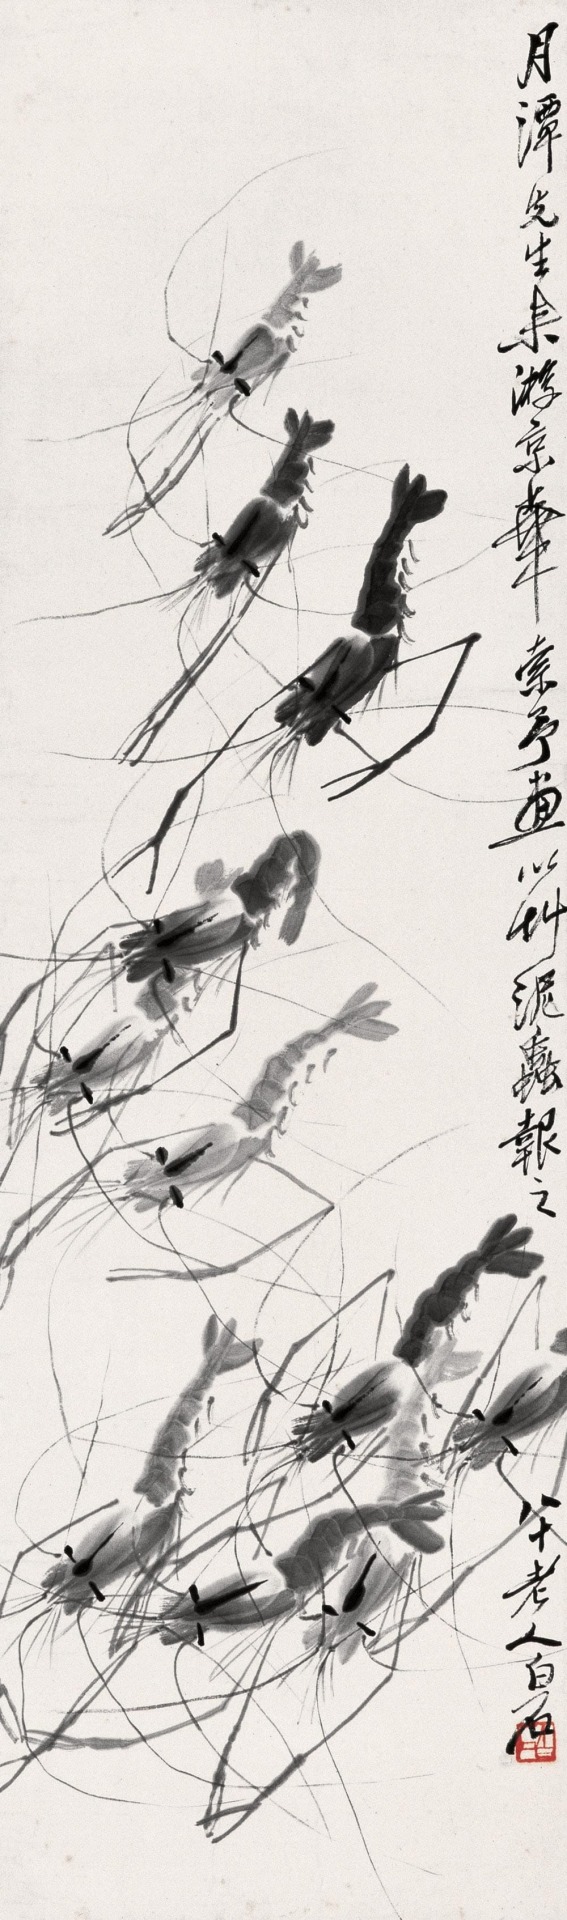 月潭先生来游京華索予画以艸泥蟲報之
八十老人白石